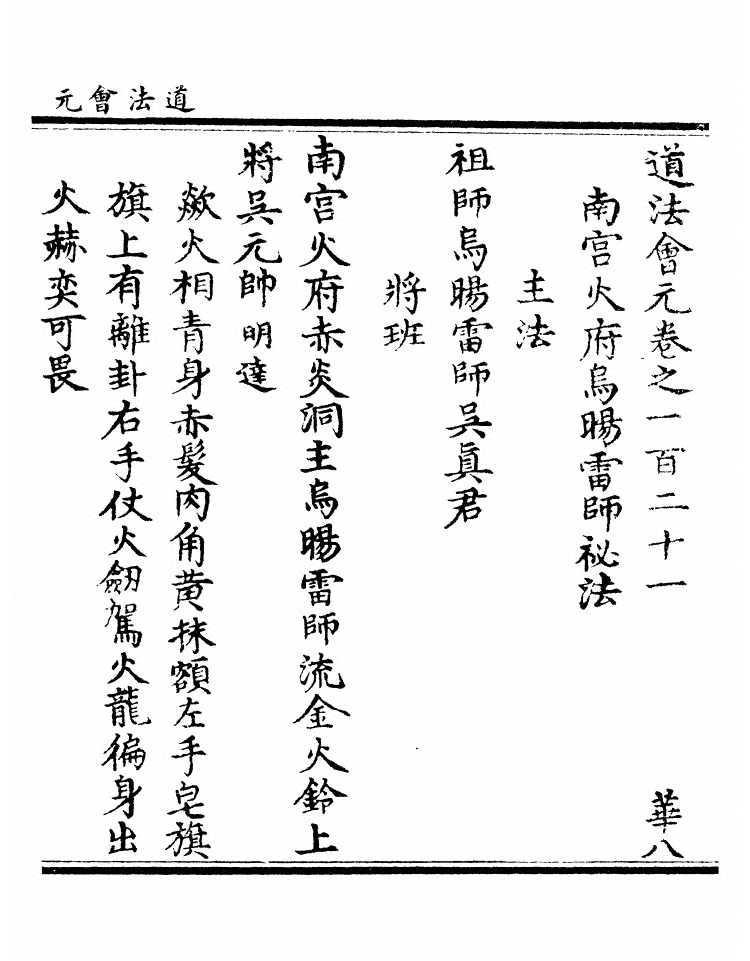 道法會元
道法會元卷之一百二十一 華八
南宮火府烏暘雷師祕法
主法
祖師烏暘雷師吳眞君
將班
南宮火府赤炎洞主烏暘雷師流金火鈴上
將吳元帥明達
歘火相青身赤髮肉角黃抹額左手皂旗
旗上有離卦右手仗火劒駕火龍徧身出
火赫奕可畏